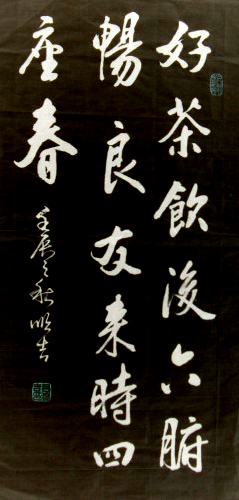 好茶飲後六腑
暢良友来時四
座春
辰之秋